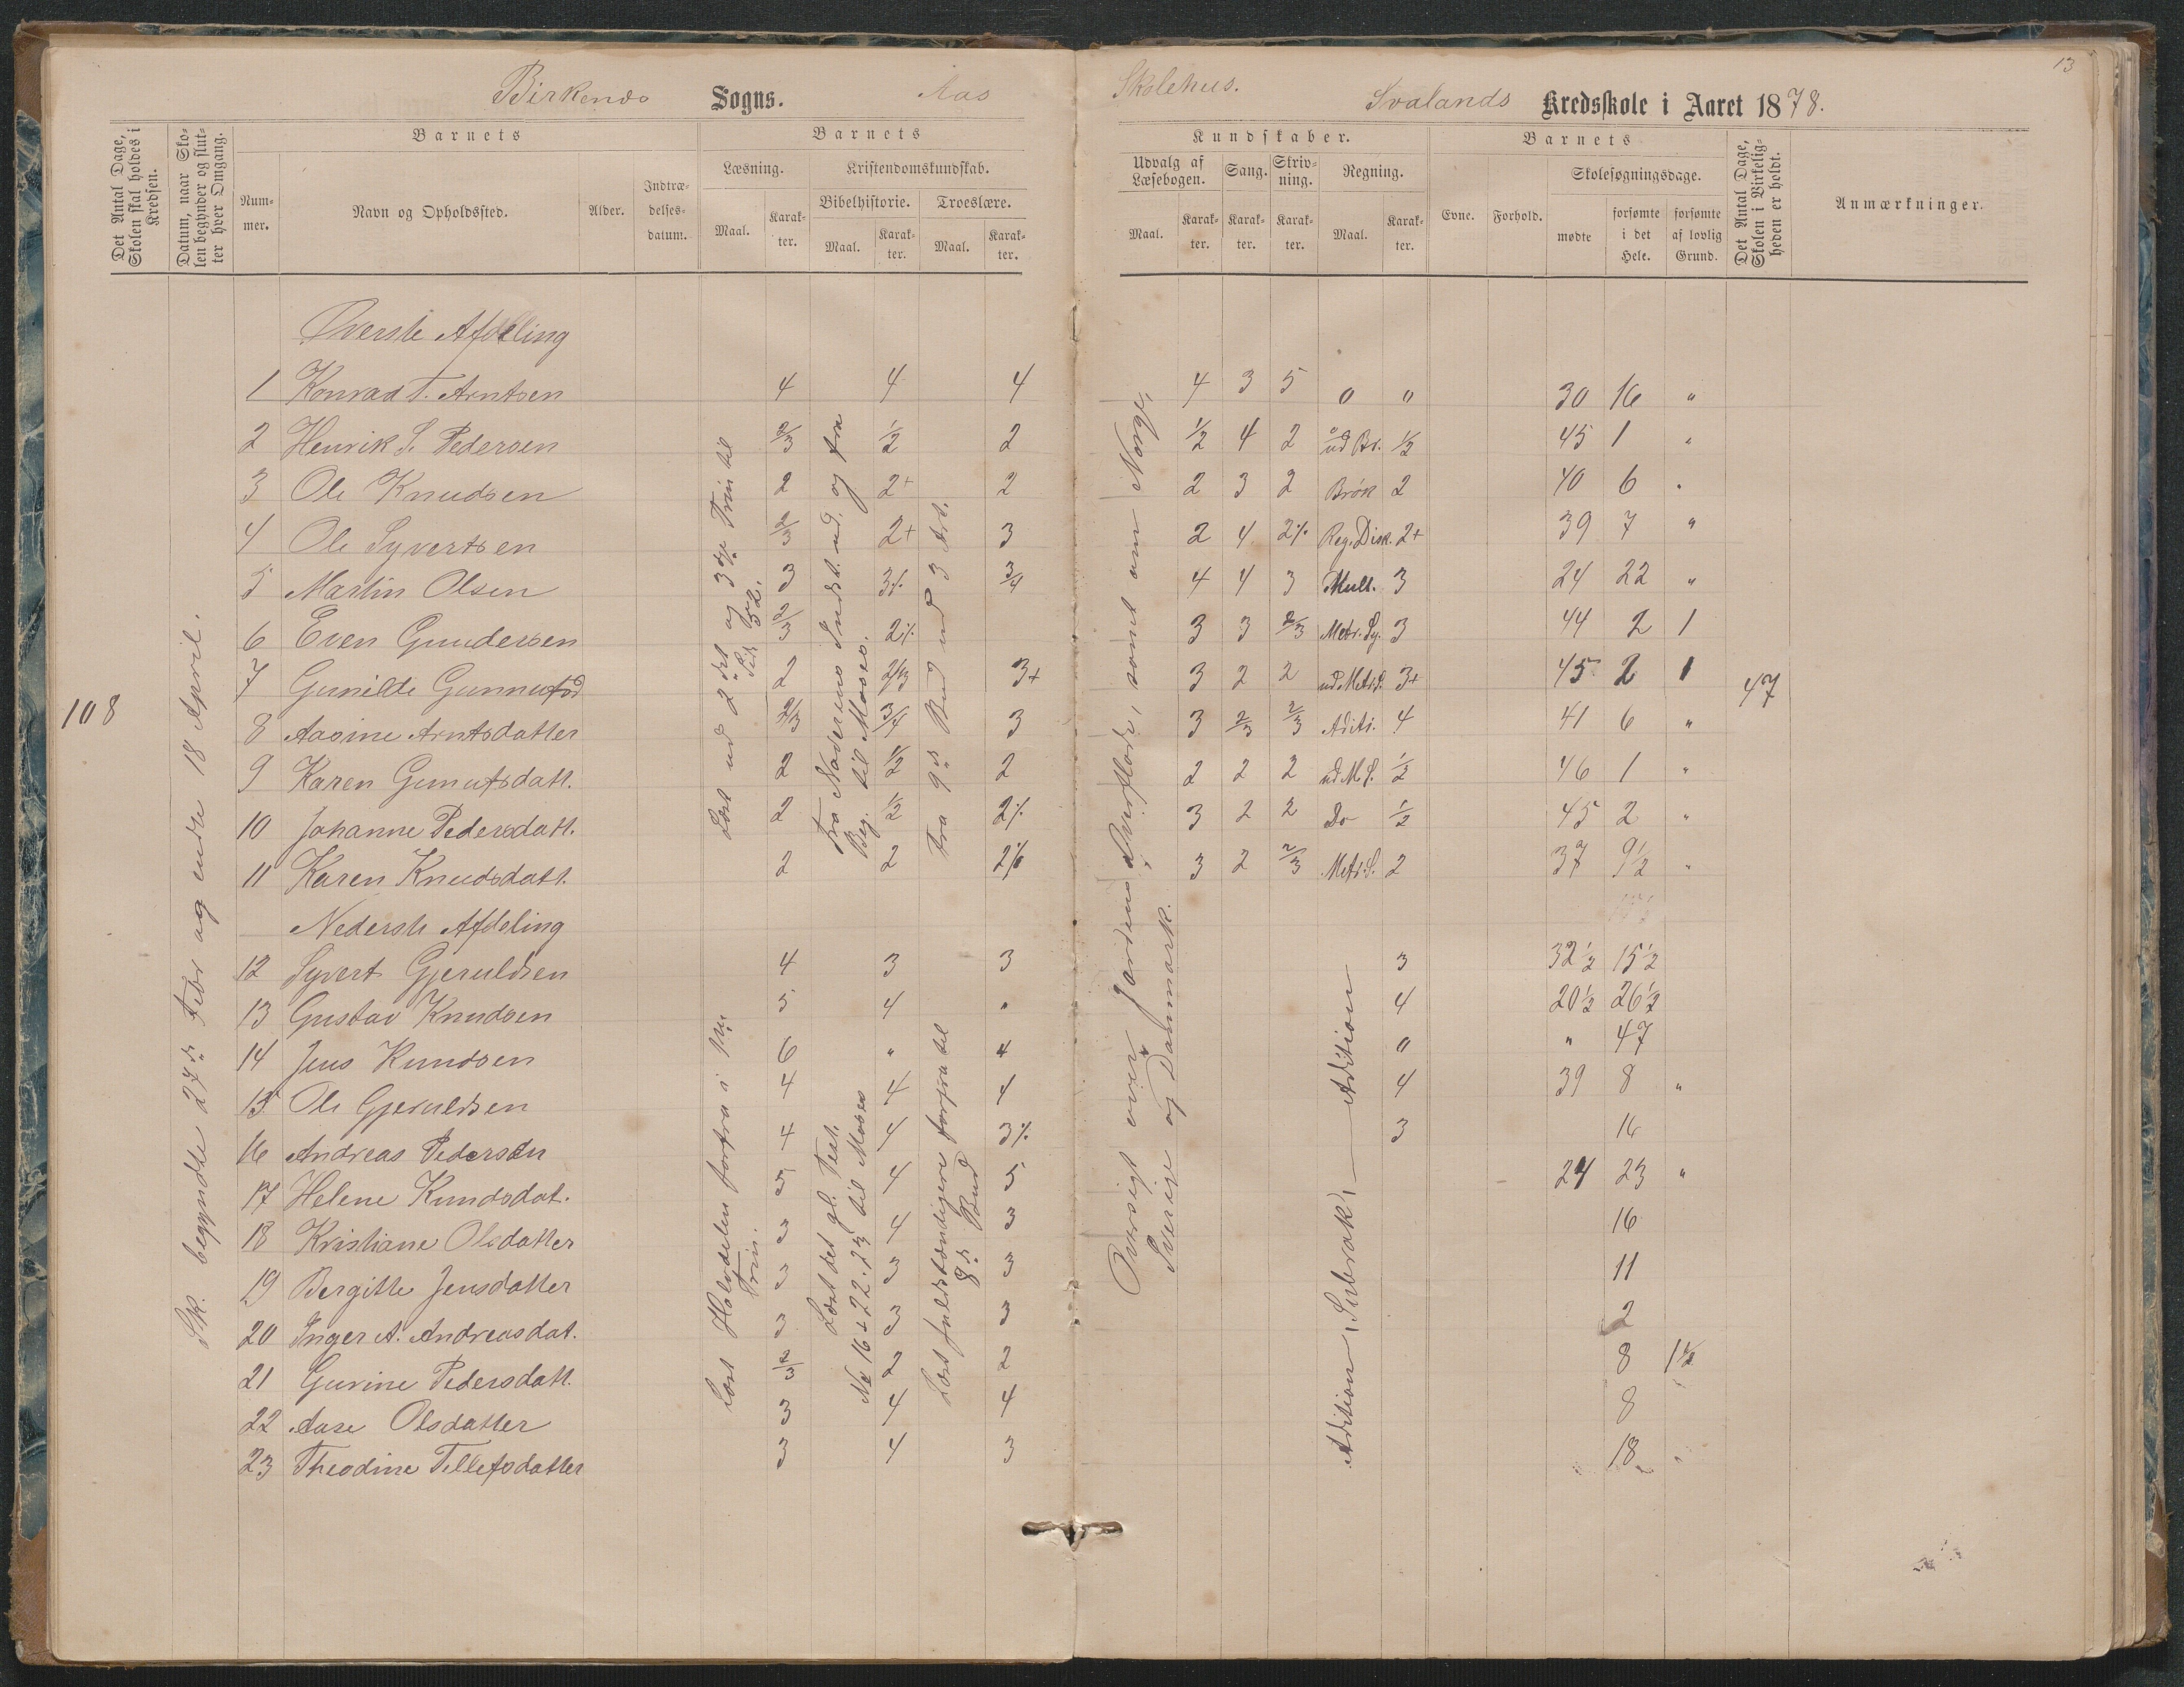 13
Birkenæs Sogns. Aas Skolehus. Svalands Kredsskole i Aaret 1878.
Det Antal Dage, Skolen skal holdes i Kredsen.
Datum, naar Skolen begynder og slutter hver Omgang.
Barnets
Nummer.
Navn og Opholdssted.
Alder.
Indtrædelsesdatum.
Barnets
Læsning.
Maal.
Karakter.
Kristendomskundskab.
Bibelhistorie.
Maal.
Karakter.
Troeslære.
Maal.
Karakter.
Kundskaber.
Udvalg af Læsebogen.
Maal.
Karakter.
Sang.
Karakter.
Skrivning.
Karakter.
Regning.
Maal.
Karakter.
Barnets
Evne.
Forhold.
Skolesøgningsdage.
mødte
forsømte i det Hele.
forsømte af lovlig Grund.
Det Antal Dage, Skolen i Virkeligheden er holdt.
Anmærkninger.
108
Sk. begyndte 27de Febr og endte 18 April.
Øverste Afdeling
1 Konrad T. Arntsen 4 4 4 4 3 5 " " 30 16 "
2 Henrik S. Pedersen 2/3 1/2 2 1/2 4 2 ud Br. 1/2 45 1 "
3 Ole Knudsen 2 2+ 2 2 3 2 Brøk 2 40 6 "
4 Ole Syvertsen 2/3 2+ 3 2 4 2% Reg. Disk. 2+ 39 7 "
5 Martin Olsen 3 3% 3/4 4 4 3 Mult. 3 24 22 "
6 Even Gundersen 2/3 2% 3 3 2/3 Metr. Sy. 3 44 2 1
7 Gunilde Gunnufsd 2 2/3 3+ 3 2 2 ud Metr. S. 3+ 45 2 1
47
8 Aasine Arntsdatter 2/3 3/4 3 3 2/3 2/3 Aditi. 4 41 6 "
9 Karen Gunufsdatt. 2 1/2 2 2 2 2 ud M. S. 1/2 46 1 "
10 Johanne Pedersdatt. 2 1/2 2% 3 2 2 Do 1/2 45 2 "
11 Karen Knudsdatt. 2 2 2% 3 2 2/3 Metr. S. 2 37 9½ "
Læst ud 2det og 3dje Trin til Side 52.
Fra Naderens Indst. ud, og fra Beg. til Moses.
Fra 9de Bud ud 3 Art.
Oversigt over Jordens Overflode, samt om Norge, Sverige og Danmark.
Nederste Afdeling
12 Syvert Gjeruldsen 4 3 3 3 32½ 15½
13 Gustav Knudsen 5 4 " 4 20½ 26½
14 Jens Knudsen 6 " " " " 47
15 Ole Gjeruldsen 4 4 4 4 39 8 "
16 Andreas Pedersen 4 4 3% 3 16
17 Helene Knudsdat. 4 5 24 23 "
18 Kristiane Olsdatter 3 4 3 16
19 Bergitte Jensdatter 3 3 3 11
20 Inger A. Andreasdat. 3 3 3 2
21 Gurine Pedersdatt. 2/3 2 2 8 1½
22 Aase Olsdatter 3 4 4 8
23 Theodine Tellefsdatter 3 4 3 18 "
Læst Halvdelen forfra i 1ste Trin.
Læst det gl. Test. No 16 - 22. 23 til Moses
Læst fuldstændigere forfra til 8de Bud
Adition, Subrak, — Adition